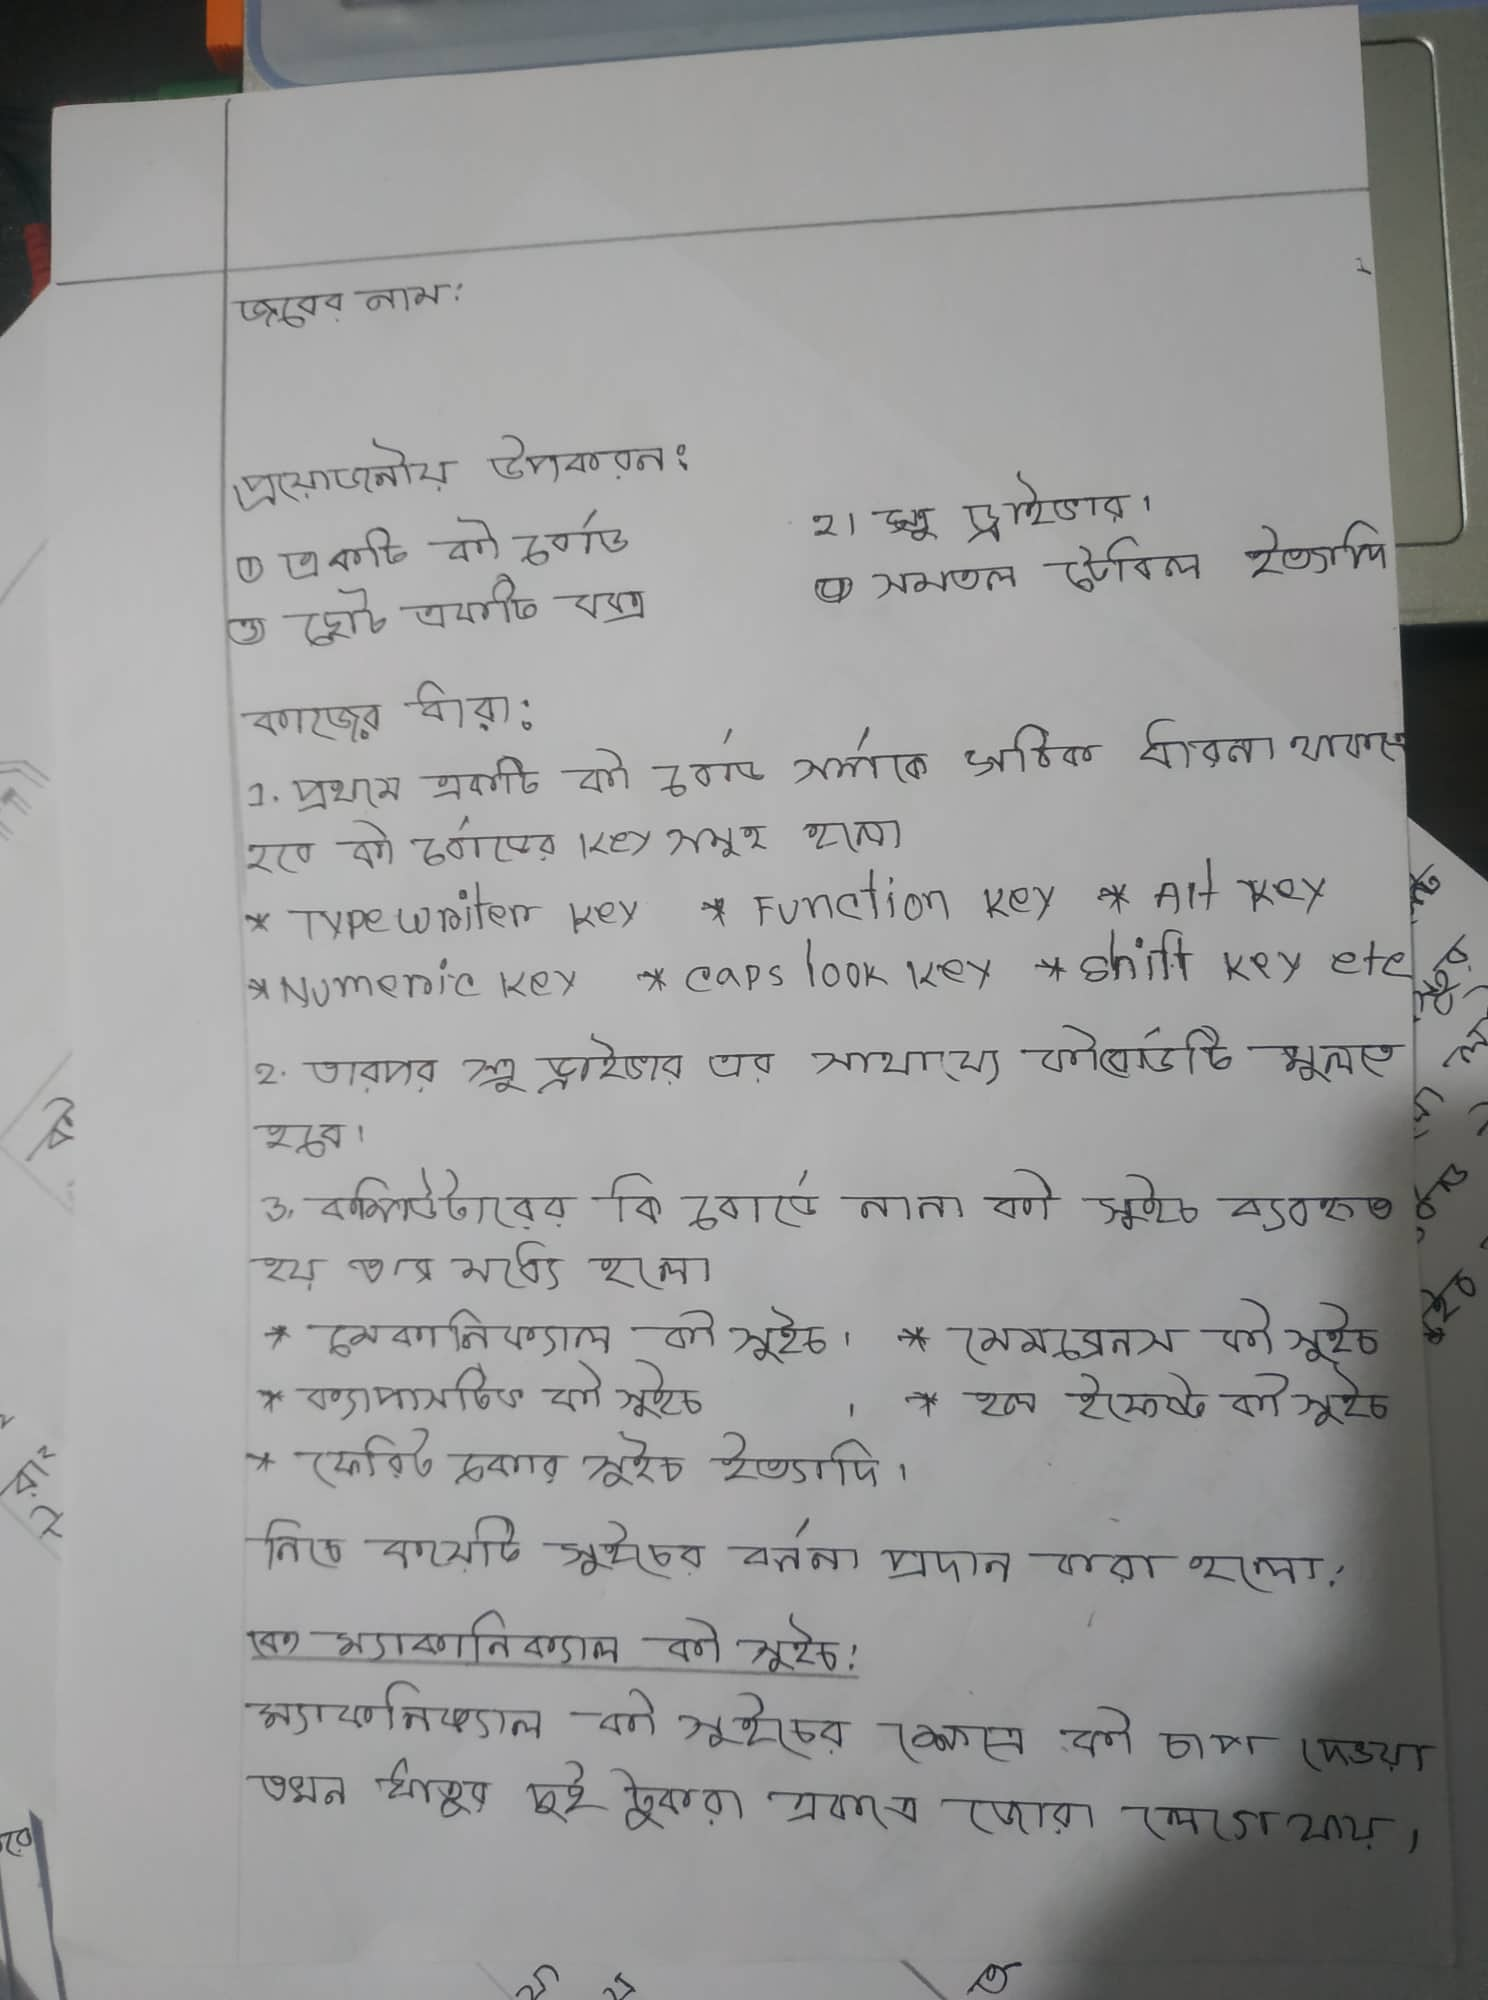 জবের নাম:
প্রয়োজনীয় উপকরন:
① একটি কী বোর্ড ২। স্ক্রু ড্রাইভার।
③ ছোট একটি বক্স ④ সমতল টেবিল ইত্যাদি
কাজের ধারা:
1. প্রথমে একটি কী বোর্ড সর্ম্পকে সঠিক ধারনা থাকতে
হবে কী বোর্ডের Key সমূহ হলো
* Typewriter key * Function key * Alt key
* Numeric key * caps look key * shift key etc
২. তারপর স্ক্রু ড্রাইভার এর সাহায্যে কীবোর্ডটি খুলতে
হবে।
3. কম্পিউটারের কি বোর্ডে নানা কী সুইচ ব্যবহৃত
হয় তার মধ্যে হলো
* মেকানিক্যাল কী সুইচ। * মেমব্রেনস কী সুইচ
* ক্যাপাসটিভ কী সুইচ । * হল ইফেক্ট কী সুইচ
* ফেরিট কোর সুইচ ইত্যাদি।
নিচে কয়েটি সুইচের বর্ননা প্রদান করা হলো:
ক) ম্যাকানিক্যাল কী সুইচ:
ম্যাকানিক্যাল কী সুইচের ক্ষেত্রে কী চাপ দেওয়া
তখন ধাতুর দুই টুকরা একত্রে জোরা লেগে যায়,